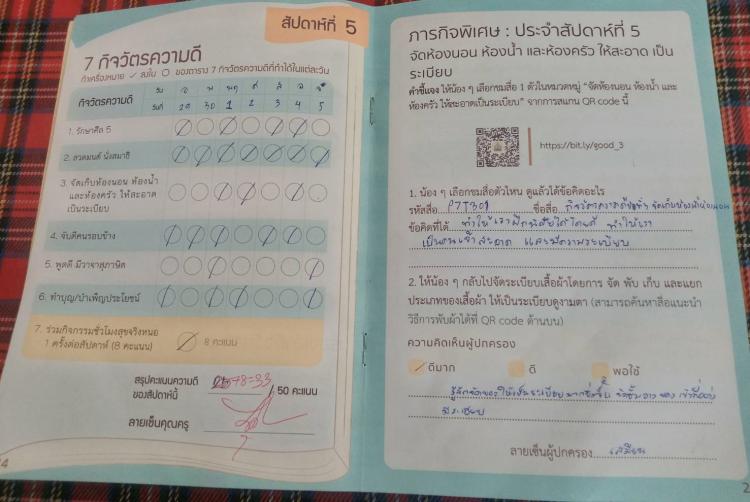 สัปดาห์ที่ 5
7 กิจวัตรความดี
ทำเครื่องหมาย ✓ ลงใน ○ ของตาราง 7 กิจวัตรความดีที่ทำได้ในแต่ละวัน
กิจวัตรความดี
วัน อ พ พฤ ศ ส อ จ
วันที่ 29 30 1 2 3 4 5
1. รักษาศีล 5
2. สวดมนต์ นั่งสมาธิ
3. จัดเก็บห้องนอน ห้องน้ำ
และห้องครัว ให้สะอาด
เป็นระเบียบ
4. จับดีคนรอบข้าง
5. พูดดี มีวาจาสุภาษิต
6. ทำบุญ/บำเพ็ญประโยชน์
7. ร่วมกิจกรรมชั่วโมงสุขจริงหนอ
1 ครั้งต่อสัปดาห์ (8 คะแนน)
8 คะแนน
สรุปคะแนนความดี
ของสัปดาห์นี้
+8=33 / 50 คะแนน
ลายเซ็นคุณครู
ภารกิจพิเศษ : ประจำสัปดาห์ที่ 5
จัดห้องนอน ห้องน้ำ และห้องครัว ให้สะอาด เป็น
ระเบียบ
คำชี้แจง ให้น้อง ๆ เลือกชมสื่อ 1 ตัวในหมวดหมู่ "จัดห้องนอน ห้องน้ำ และ
ห้องครัว ให้สะอาดเป็นระเบียบ" จากการสแกน QR code นี้
https://bit.ly/good_3
1. น้อง ๆ เลือกชมสื่อตัวไหน ดูแล้วได้ข้อคิดอะไร
รหัสสื่อ P7T301 ชื่อสื่อ กิจวัตรความดี จัดเก็บห้องน้ำห้องนอน
ข้อคิดที่ได้ ทำให้เราฝึกนิสัย ทำให้เรา
เป็นคนสะอาด และมีความระเบียบ
2. ให้น้อง ๆ กลับไปจัดระเบียบเสื้อผ้าโดยการ จัด พับ เก็บ และแยก
ประเภทของเสื้อผ้า ให้เป็นระเบียบดูงามตา (สามารถค้นหาสื่อแนะนำ
วิธีการพับผ้าได้ที่ QR code ด้านบน)
ความคิดเห็นผู้ปกครอง
ดีมาก ดี พอใช้
รู้จักจัดของให้เป็นระเบียบมากยิ่งขึ้น
ลายเซ็นผู้ปกครอง